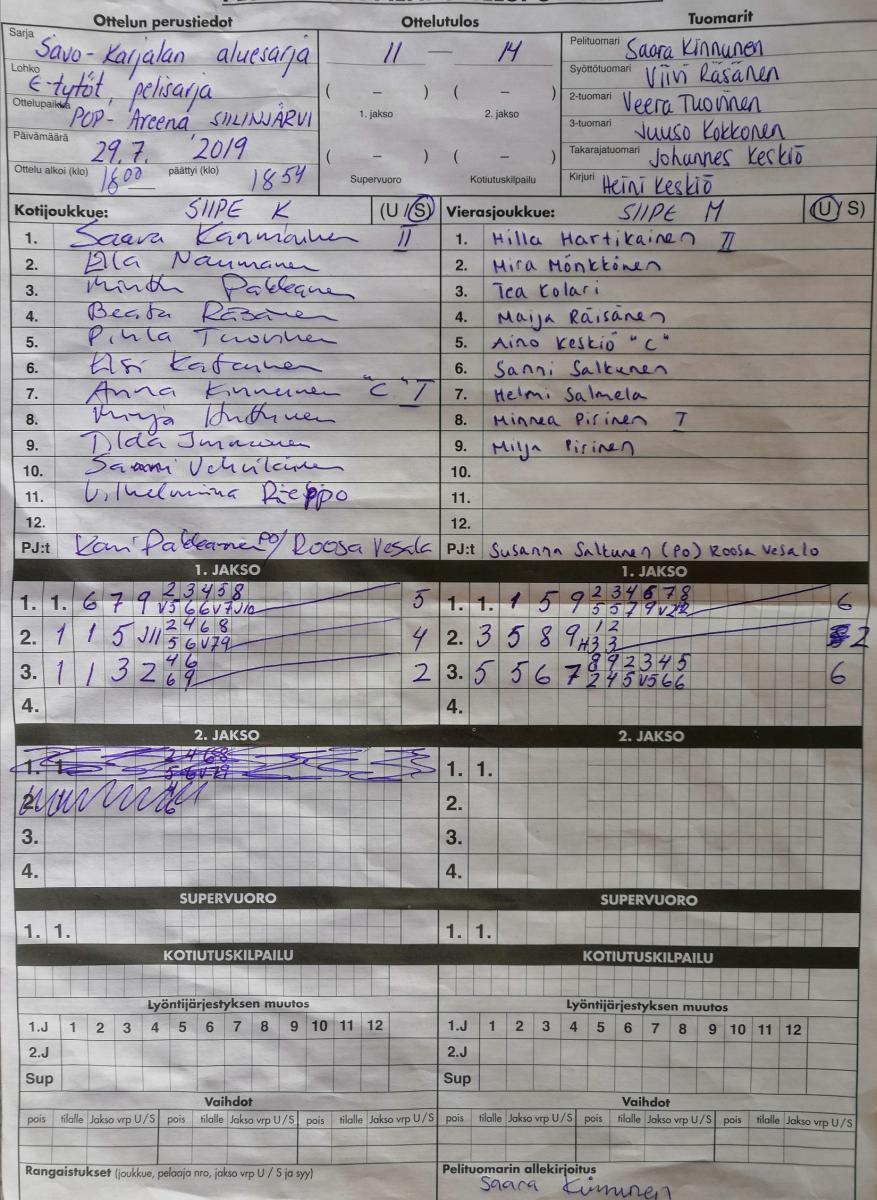 Ottelun perustiedot
Ottelutulos
Tuomarit
Sarja Savo-Karjalan aluesarja
Lohko E-tytöt, pelisarja
Ottelupaikka POP-Areena SIILINJÄRVI
Päivämäärä 29.7. 2019
Ottelu alkoi (klo) 18 00 päättyi (klo) 18 54
11 — 14
( – ) ( – )
1. jakso 2. jakso
( – ) ( – )
Supervuoro Kotiutuskilpailu
Pelituomari Saara Kinnunen
Syöttötuomari Viivi Räsänen
2-tuomari Veera Tuovinen
3-tuomari Juuso Kokkonen
Takarajatuomari Johannes Keskiö
Kirjuri Heini Keskiö
Kotijoukkue: SIIPE K (U/S)
1. Saara II
2. Naumanen
3. Minttu Pakkanen
4. Beata Räsänen
5. Pihla Tuovinen
6.
7. Anna Kinnunen "C" I
8. Huttunen
9. Immonen
10.
11. Vilhelmiina Rieppo
12.
PJ:t Pakkanen PO/ Roosa Vesala
Vierasjoukkue: SIIPE M (U/S)
1. Hilla Hartikainen II
2. Mira Mönkkönen
3. Tea Kolari
4. Maija Räisänen
5. Aino Keskiö "C"
6. Sanni Saltunen
7. Helmi Salmela
8. Minnea Pirinen I
9. Milja Pirinen
10.
11.
12.
PJ:t Susanna Saltunen (PO) Roosa Vesalo
1. JAKSO
1. 1. 6 7 9 2 3 4 5 8 5
2. 1 1 5 J11 2 4 6 8 4
5 6 V7 9
3. 1 1 3 2 4 6 2
6 9
4.
1. JAKSO
1. 1. 1 5 9 2 3 4 6 7 8 6
2. 3 5 8 9 1 2 2
H3 3
3. 5 5 6 7 8 9 2 3 4 5 6
2 4 5 V5 6 6
4.
2. JAKSO
1. 1.
2.
3.
4.
2. JAKSO
1. 1.
2.
3.
4.
SUPERVUORO
1. 1.
SUPERVUORO
1. 1.
KOTIUTUSKILPAILU
KOTIUTUSKILPAILU
Lyöntijärjestyksen muutos
1.J 1 2 3 4 5 6 7 8 9 10 11 12
2.J
Sup
Lyöntijärjestyksen muutos
1.J 1 2 3 4 5 6 7 8 9 10 11 12
2.J
Sup
Vaihdot
pois tilalle Jakso vrp U/S pois tilalle Jakso vrp U/S pois tilalle Jakso vrp U/S
Vaihdot
pois tilalle Jakso vrp U/S pois tilalle Jakso vrp U/S pois tilalle Jakso vrp U/S
Rangaistukset (joukkue, pelaaja nro, jakso vrp U/S ja syy)
Pelituomarin allekirjoitus
Saara Kinnunen